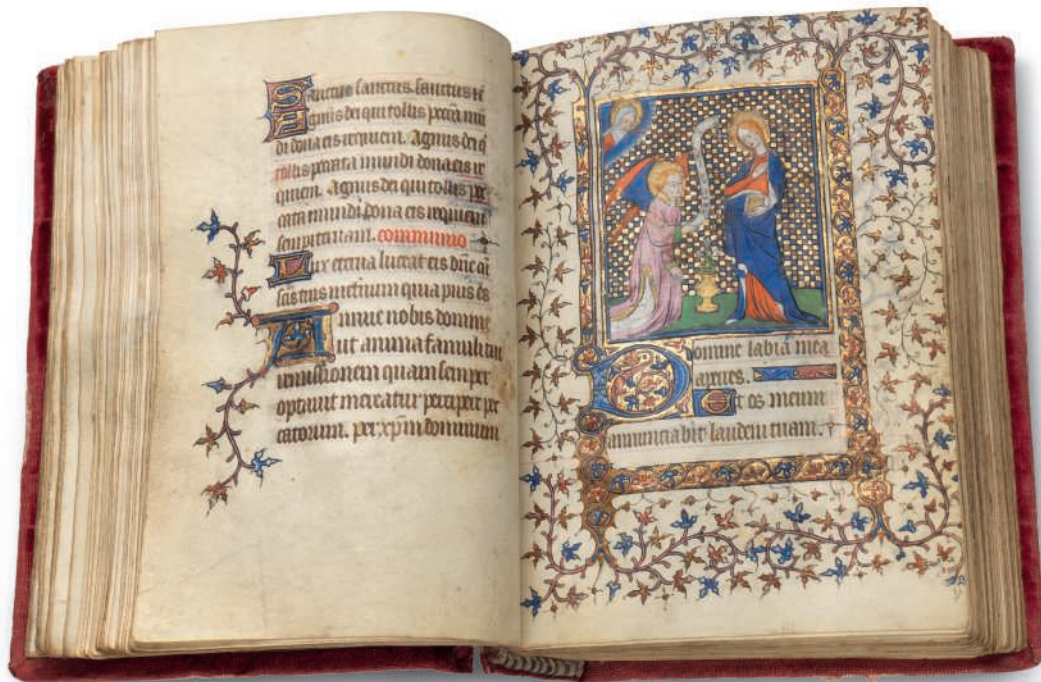 Sanctus sanctus. sanctus ꝛc̄
Agnus dei qui tollis pccā mū
di dona eis requiem. Agnus dei q̄
tollis peccata mundi dona eis re
quiem. Agnus dei qui tollis pec
cata mundi dona eis requiem
sempiternam. communio
Lux eterna luceat eis dn̄e cū
sc̄is tuis in etnum quia pius es
Annue nobis domine
ut anima famuli tui
remissionem quam semper
optauit mereatur percipere pec
catorum. per xp̄m dominum
Domine labia mea
aperies.
Et os meum
annunciabit laudem tuam.